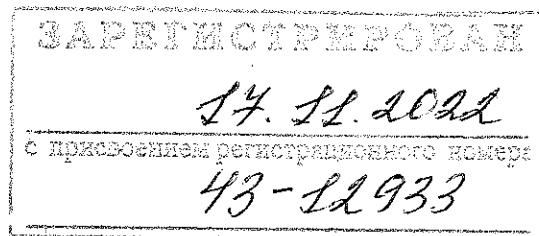 ЗАРЕГИСТРИРОВАН
17. 11. 2022
с присвоением регистрационного номера
43-12933